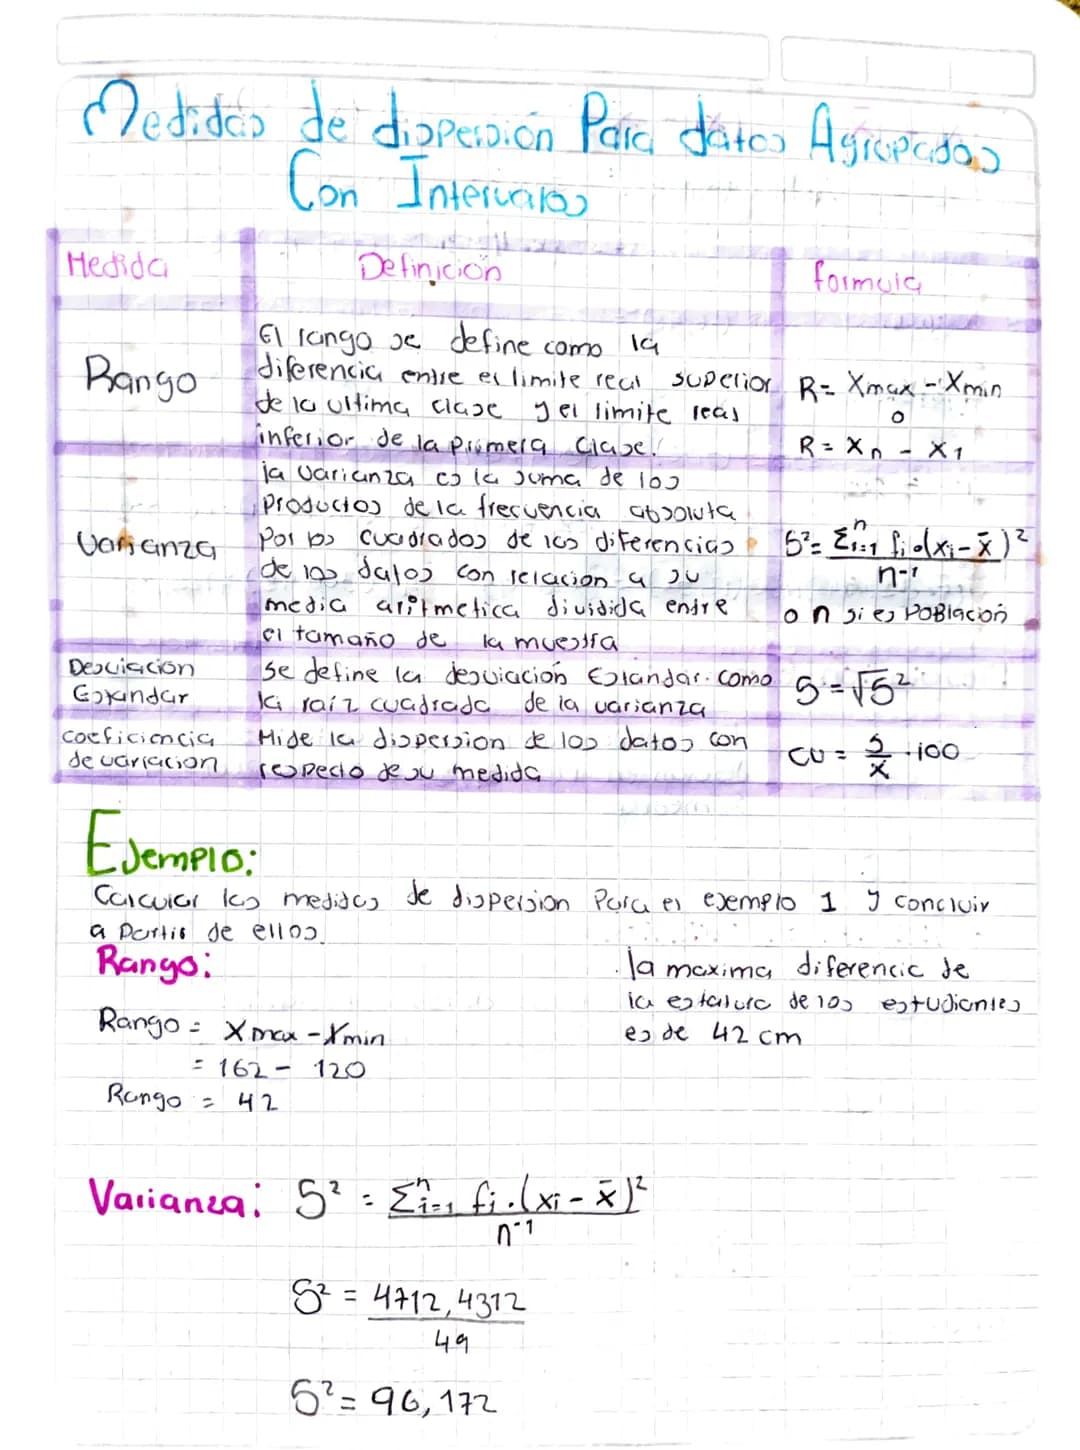 Medidas de dispersión Para datos Agrupados
Con Intervalos
Medida
Definición
formula
Rango
El rango se define como la
diferencia entre el limite real superior
de la ultima clase y el limite real
inferior de la primera clase.
R= Xmax - Xmin
o
R = Xn - X1
Varianza
la varianza es la suma de los
productos de la frecuencia absoluta
Por los cuadrados de las diferencias
de los datos con relacion a su
media aritmetica dividida entre
el tamaño de la muestra
S²= Σⁿi=1 fi•(xi-x̄)²
n-1
o n si es POBlación
Desviación
Estandar
Se define la desviación Estandar como
la raíz cuadrada de la varianza
S = √S²
coeficiencia
de variacion
Mide la dispersion de los datos con
respecto de su medida
CV = S/x · 100
EJemplo:
Calcular las medidas de dispersion Para el ejemplo 1 y concluir
a partir de ellos.
Rango:
Rango = Xmax - Xmin
= 162 - 120
Rango = 42
la maxima diferencia de
la estatura de los estudiantes
es de 42 cm
Varianza: S² = Σⁿi=1 fi.(xi - x̄)²
n-1
S² = 4712,4312
49
S² = 96,172